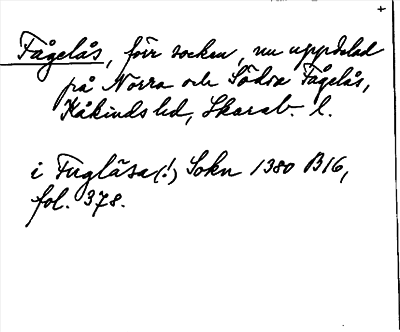 +
Fågelås, förr socken, nu uppdelad
på Norra och Södra Fågelås,
Kåkinds hd, Skarab. l.
i Fuglåsa(!) Sokn 1380 B16,
fol. 378.